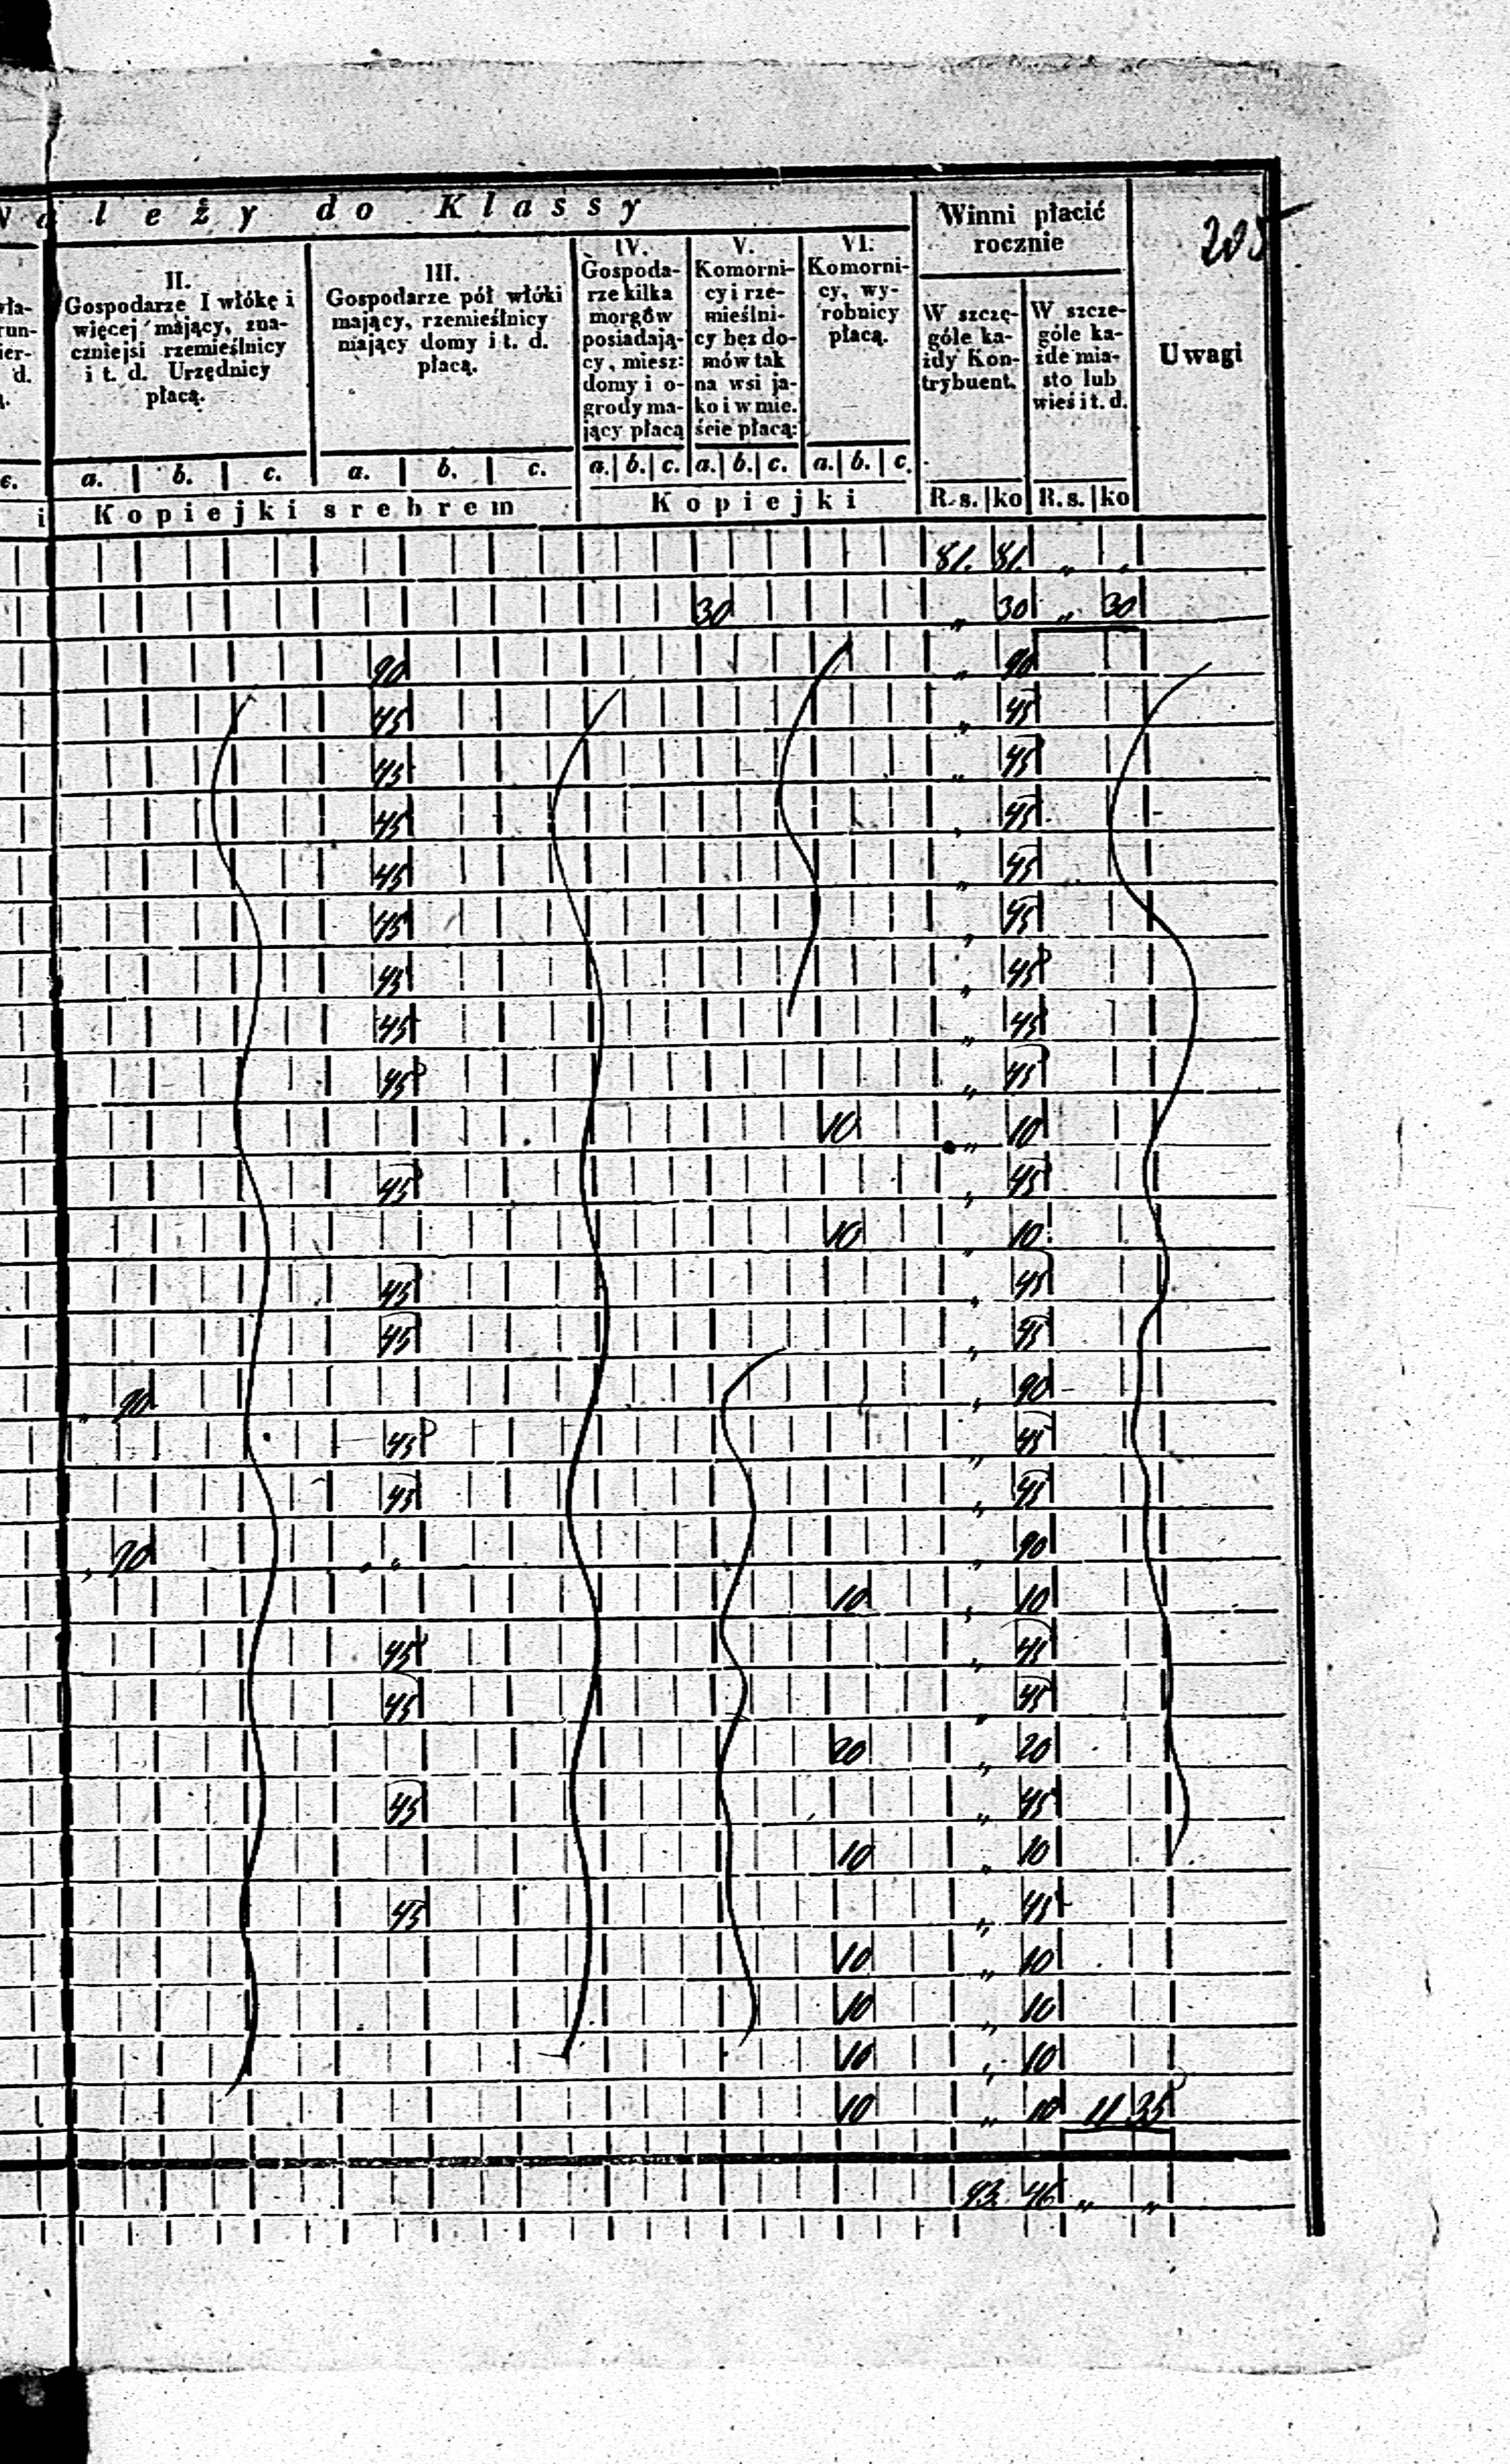 N a l e ż y do Klassy
Winni płacić
rocznie
205
II.
Gospodarze I włókę i
więcej mający, zna-
czniejsi rzemieślnicy
i t. d. Urzędnicy
płacą.
III.
Gospodarze pół włóki
mający, rzemieślnicy
mający domy i t. d.
płacą.
IV.
Gospoda-
rze kilka
morgów
posiadają-
cy, miesz:
domy i o-
grody ma-
jący płacą
V.
Komorni-
cy i rze-
mieślni-
cy bez do-
mów tak
na wsi ja-
ko i w mie.
ście płacą:
VI.
Komorni-
cy, wy-
robnicy
płacą.
W szczę-
góle ka-
żdy Kon-
trybuent.
W szcze-
góle ka-
żde mia-
sto lub
wieś i t. d.
Uwagi
c. a. b. c. a. b. c. a. b. c. a. b. c. a. b. c.
i Kopiejki srebrem Kopiejki R. s. ko R. s. ko
81. 81. „ „
30 „ 30 „ 30
90 „ 90
45 „ 45
45 „ 45
45 „ 45
45 „ 45
45 „ 45
45 „ 45
45 „ 45
45 „ 45
10 „ 10
45 „ 45
10 „ 10
45 „ 45
45 „ 45
„ 90 „ 90
45 „ 45
45 „ 45
„ 90 „ „ „ 90
10 „ 10
45 „ 45
45 „ 45
20 „ 20
45 „ 45
10 „ 10
45 „ 45
10 „ 10
10 „ 10
10 „ 10
10 „ 10 11 35
93 46 „ „